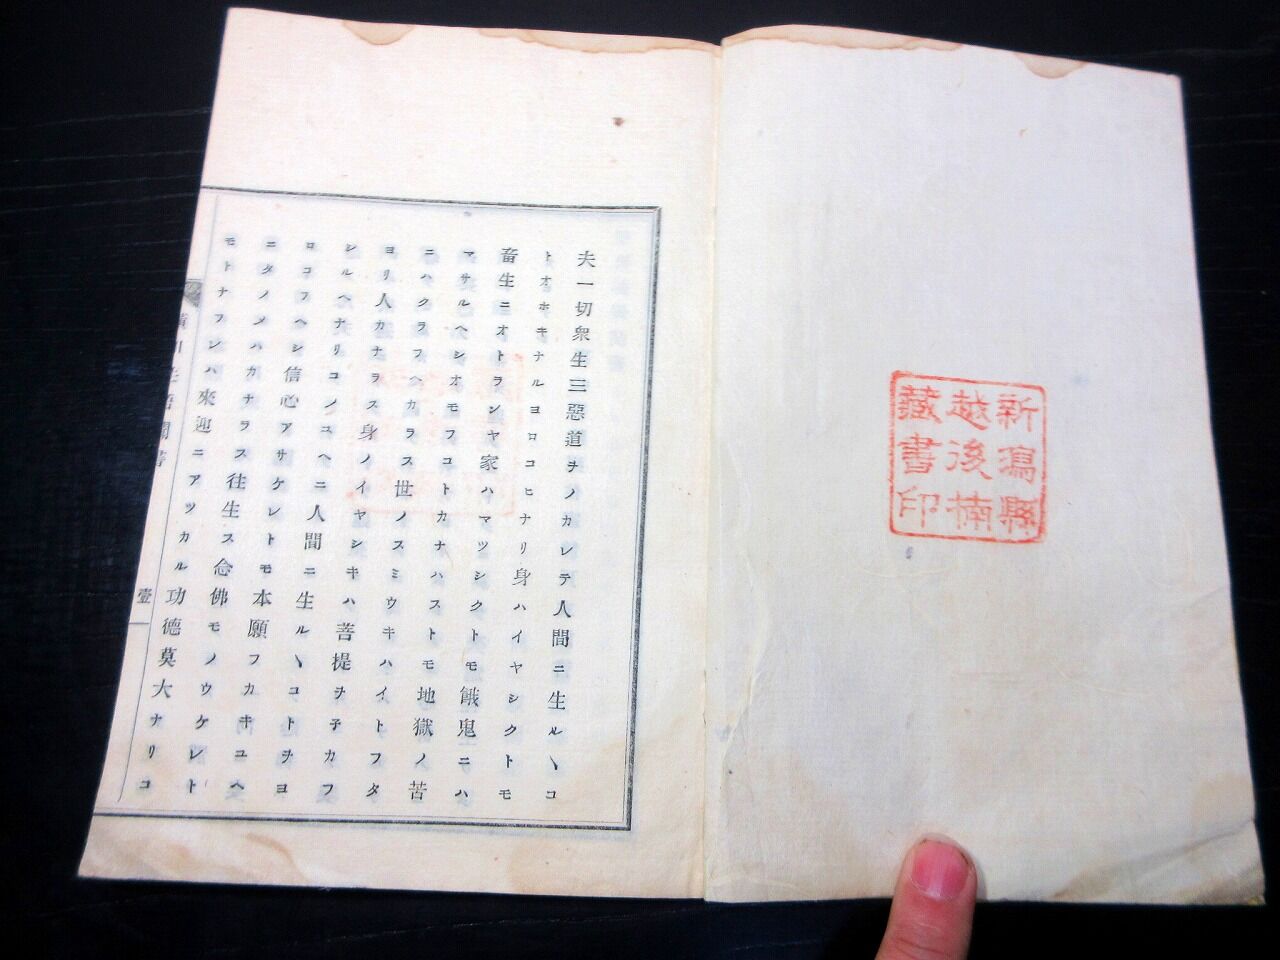 新瀉縣
越後楠
藏書印
夫一切衆生三惡道ヲノカレテ人間ニ生ルヽコ
トオホキナルヨロコヒナリ身ハイヤシクトモ
畜生ニオトランヤ家ハマツシクトモ餓鬼ニハ
マサルヘシオモフコトカナハストモ地獄ノ苦
ニハクラフヘカラス世ノスミウキハイトフタ
ヨリ人カナラス身ノイヤシキハ菩提ヲ子カフ
シルヘナリコノユヘニ人間ニ生ルヽコトヲヨ
ロコフヘシ信心アサケレトモ本願フカキユヘ
ニタノメハカナラス往生ス念佛モノウケレト
モトナフレハ來迎ニアツカル功德莫大ナリコ
壹